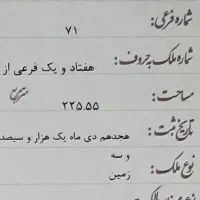 شماره فرعی: ۷۱
شماره ملک به حروف: هفتاد و یک فرعی از
مساحت: ۲۲۵.۵۵
تاریخ ثبت: هجدهم دی ماه یک هزار و سیصد
و سه
نوع ملک: زمین